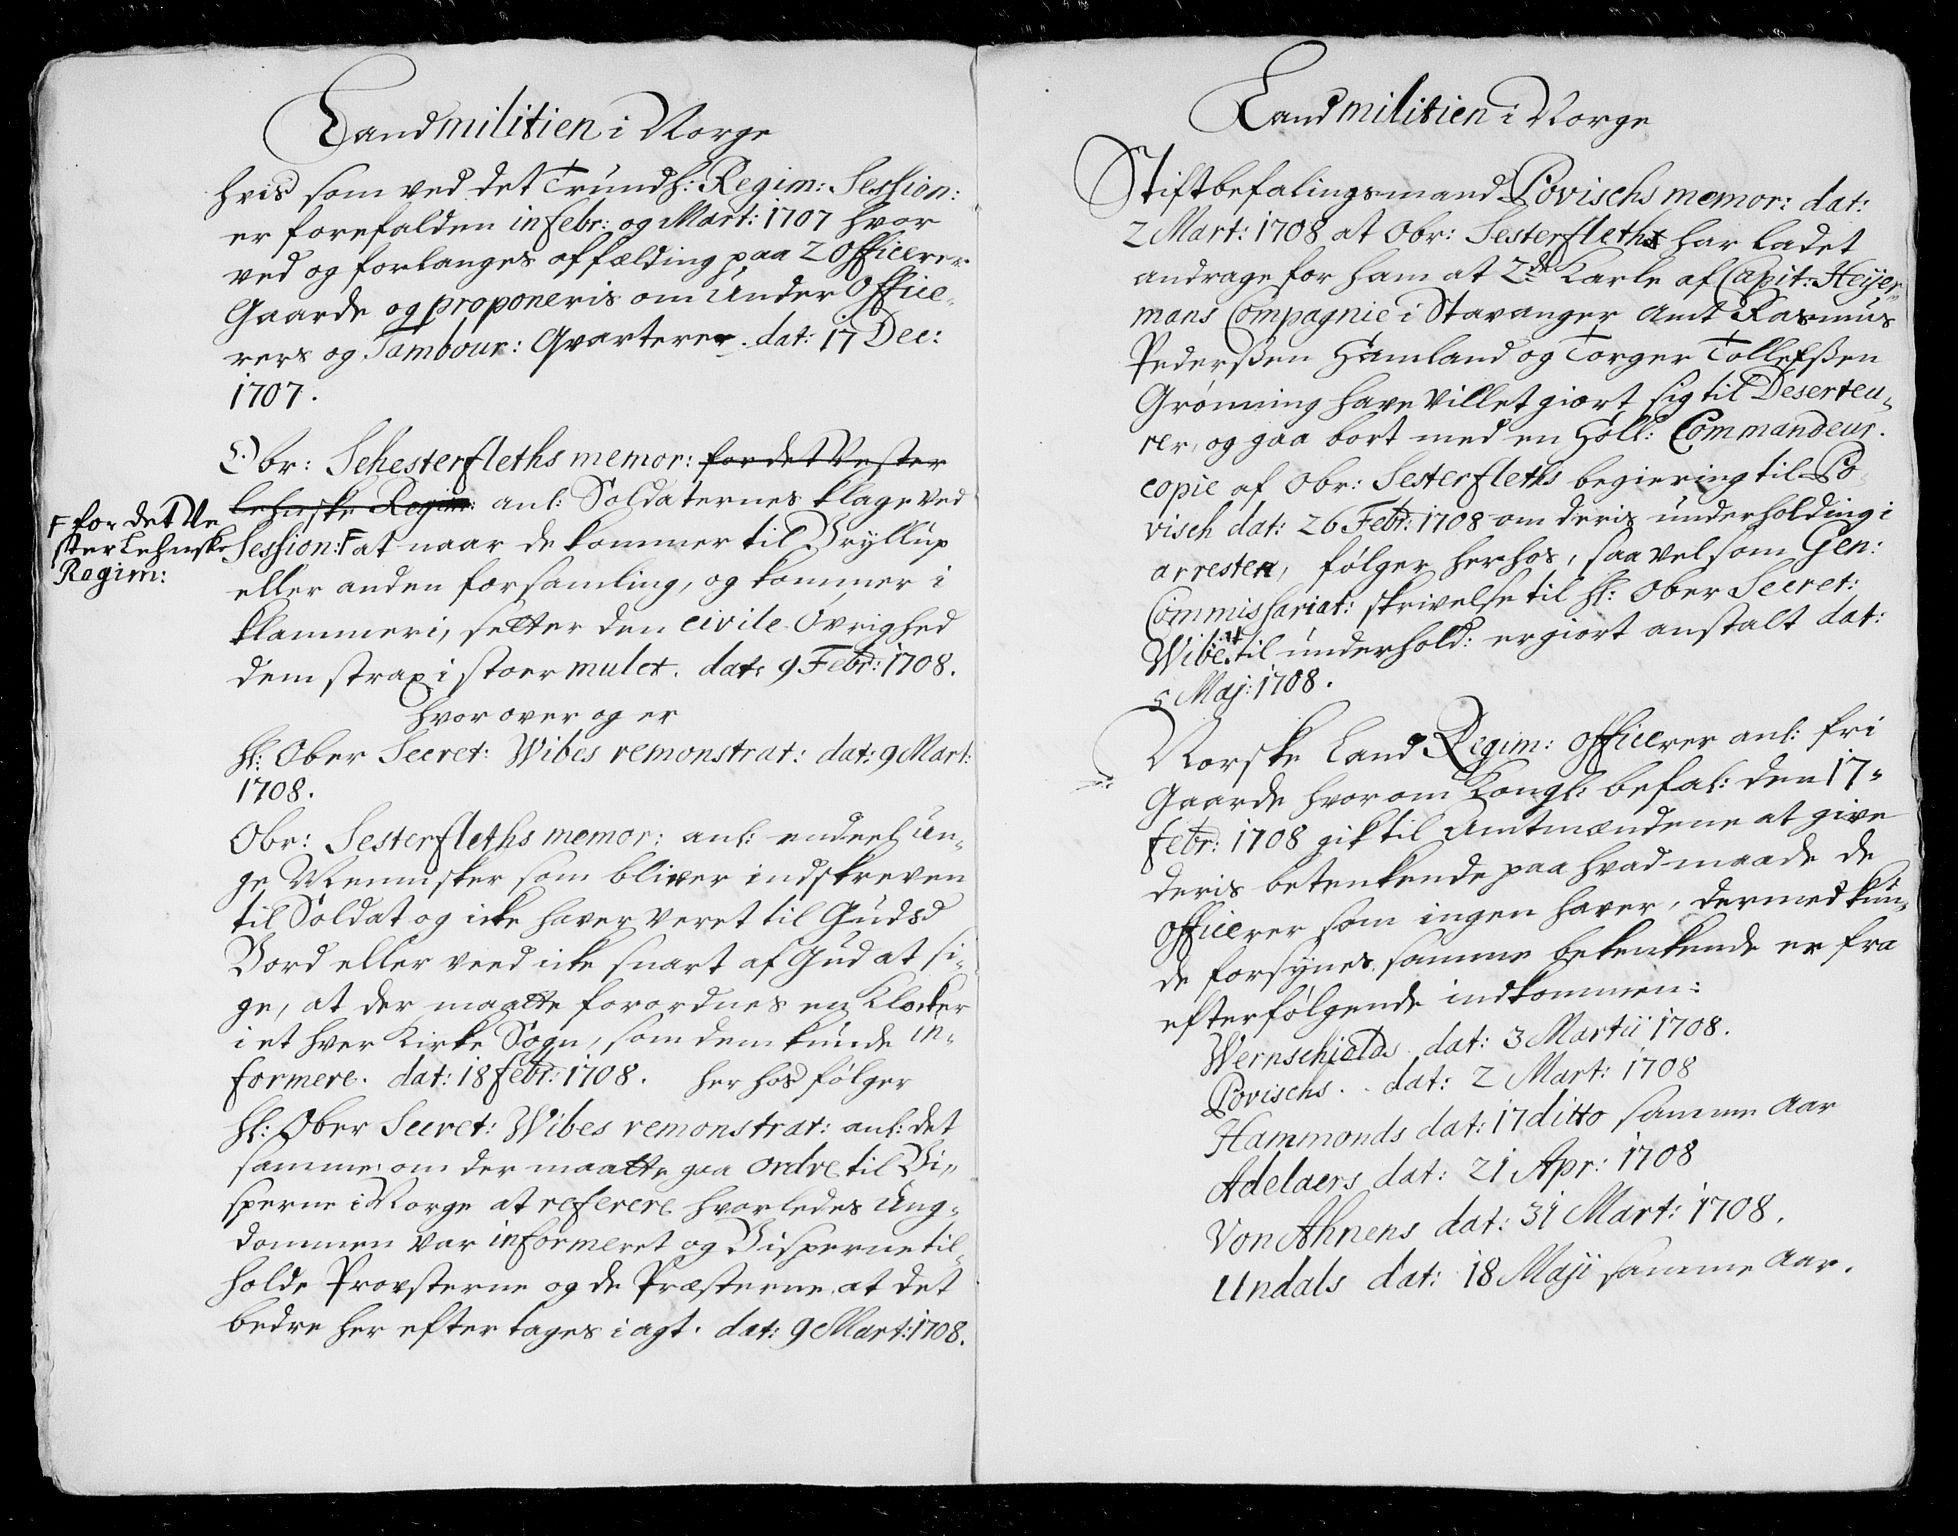 Landmilitien i Norge
hvis som ved det Trundh: Regim: Session:
er forefalden in Febr: og Mart: 1707 hvor
ved og forlanges affælding paa 2 Officerer
Gaarde og proponeris om Under Office-
rers og Tambour: Qvarterer. dat: 17 Dec:
1707.
Obr: Sehesterfleths memor: for det Vester
Lehnske Regim: anl: Soldaternes klage ved
Ⱶ for det Ve
ster Lehnske
Regim:
Session: Ⱶ at naar de kommer til Bryllup
eller anden forsamling, og kommer i
klammeri, setter den civile Øvrighed
dem strax i stoer mulct. dat: 9 Febr: 1708.
hvor over og er
Hl: Ober Secret: Wibes remonstrat: dat: 9 Mart:
1708.
Obr: Sesterfleths memor: anl: endeel un-
ge Mennisker som bliver indskreven
til Soldat og icke haver veret til Guds
Bord eller veed icke snart af Gud at si-
ge, at der maatte forordnes en Klocker
i et hver Kirke Sogn, som dem kunde in-
formere. dat: 18 Febr: 1708. her hos følger
Hl: Ober Secret: Wibes remonstrat: anl: det
samme, om der maatte gaa ordre til Bi-
sperne i Norge at referere hvorledes Ung-
dommen var informeret og Bisperne til-
holde Provsterne og de Præsterne, at det
bedre her efter tages i agt. dat: 9 Mart: 1708.
Landmilitien i Norge
Stiftbefalingsmand Povischs memor: dat:
2 Mart: 1708 at Obr: Sesterfleth har ladet
andrage for ham at 2de Karle af Capit: Heijer-
mans Compagnie i Stavanger Amt Rasmus
Pederßen Hamland og Torger Tollefßen
Grønning have villet giort sig til Deserteu-
rer, og gaa bort med en Holl: Commandeur.
copie af Obr: Sesterfleths begiering til Po
visch dat: 26 Febr: 1708 om deris underholding i
arresten, følger herhos, saa vel som Gen:
Commissariat: skrivelse til Hl: Ober Secret:
Wibe at til underhold: er giort anstalt dat:
5 Maj: 1708.
Norske Land Regim: Officerer anl: fri
Gaarde hvorom Kongl: befal: den 17-
Febr: 1708 gik til Amtmændene at give
deris betenkende paa hvad maade de
Officerer som ingen haver, dermed kun-
de forsynes, samme betenkende er fra
efterfølgende indkommen:
Wernschiolds dat: 3 Martii 1708.
Povischs . . dat: 2 Mart: 1708
Hammonds dat: 17 ditto samme Aar
Adelaers dat: 21 Apr: 1708
Von Ahnens dat: 31 Mart: 1708.
Undals dat: 18 Maji samme Aar.